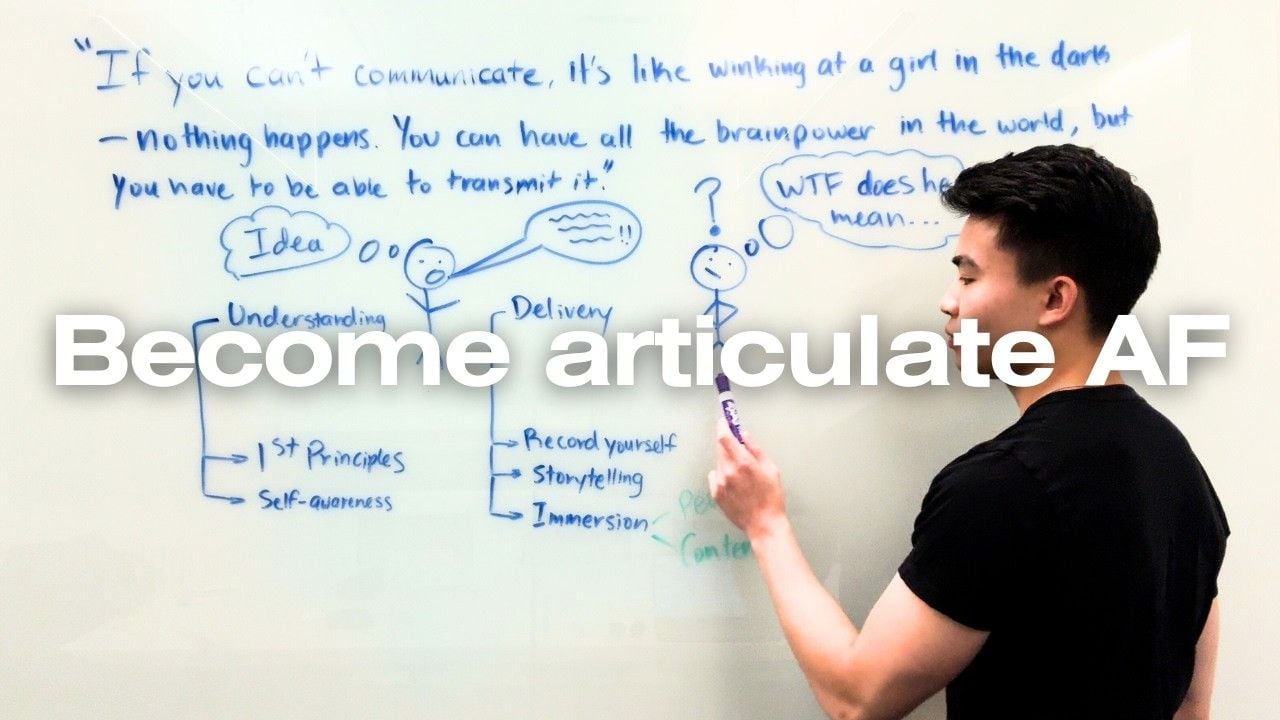 "If you can't communicate, it's like winking at a girl in the dark
— nothing happens. You can have all the brainpower in the world, but
you have to be able to transmit it."
Idea
!!
?
WTF does he
mean...
Understanding
Delivery
Become articulate AF
1st Principles
Self-awareness
Record yourself
Storytelling
Immersion